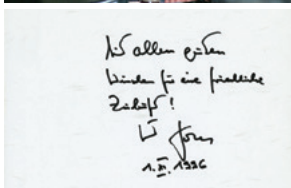 Mit allen guten
Wünschen für eine friedliche
Zukunft!
1. XI. 1996